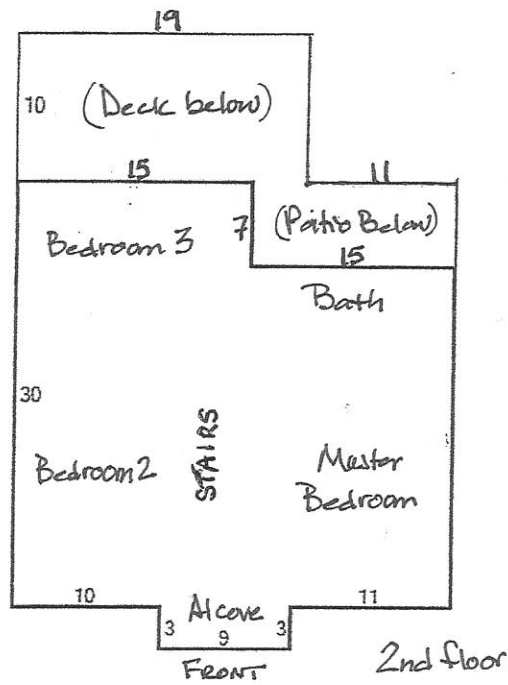 19
10 (Deck below)
15 11
Bedroom 3 7 (Patio Below)
15
Bath
30
STAIRS
Bedroom 2 Master
Bedroom
10 Alcove 11
3 9 3
FRONT 2nd floor